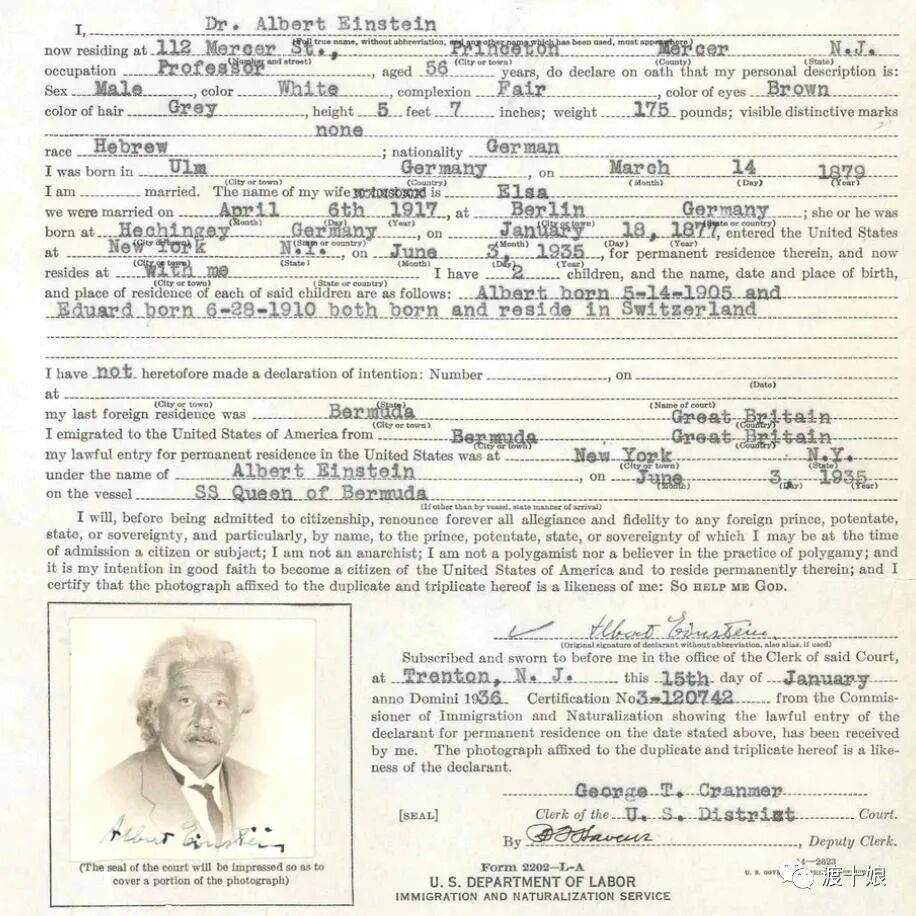 I, Dr. Albert Einstein
(Full true name, without abbreviation, and any other name which has been used, must appear here)
now residing at 112 Mercer St., Princeton Mercer N.J.
(Number and street) (City or town) (County) (State)
occupation Professor, aged 56 years, do declare on oath that my personal description is:
Sex Male, color White, complexion Fair, color of eyes Brown
color of hair Grey, height 5 feet 7 inches; weight 175 pounds; visible distinctive marks
none
race Hebrew; nationality German
I was born in Ulm Germany, on March 14 1879
(City or town) (Country) (Month) (Day) (Year)
I am married. The name of my wife is Elsa
we were married on April 6th 1917, at Berlin Germany; she or he was
(Month) (Day) (Year) (City or town) (State or country)
born at Hechingey Germany, on January 18, 1877, entered the United States
(City or town) (State or country) (Month) (Day) (Year)
at New York N.Y., on June 3, 1935, for permanent residence therein, and now
(City or town) (State) (Month) (Day) (Year)
resides at with me I have 2 children, and the name, date and place of birth,
(City or town) (State or country)
and place of residence of each of said children are as follows: Albert born 5-14-1905 and
Eduard born 6-28-1910 both born and reside in Switzerland
I have not heretofore made a declaration of intention: Number , on
(Date)
at
(City or town) (State) (Name of court)
my last foreign residence was Bermuda Great Britain
(City or town) (Country)
I emigrated to the United States of America from Bermuda Great Britain
(City or town) (Country)
my lawful entry for permanent residence in the United States was at New York N.Y.
(City or town) (State)
under the name of Albert Einstein, on June 3, 1935
(Month) (Day) (Year)
on the vessel SS Queen of Bermuda
(If other than by vessel, state manner of arrival)
I will, before being admitted to citizenship, renounce forever all allegiance and fidelity to any foreign prince, potentate,
state, or sovereignty, and particularly, by name, to the prince, potentate, state, or sovereignty of which I may be at the time
of admission a citizen or subject; I am not an anarchist; I am not a polygamist nor a believer in the practice of polygamy; and
it is my intention in good faith to become a citizen of the United States of America and to reside permanently therein; and I
certify that the photograph affixed to the duplicate and triplicate hereof is a likeness of me: SO HELP ME GOD.
Albert Einstein
(Original signature of declarant without abbreviation, also alias, if used)
Subscribed and sworn to before me in the office of the Clerk of said Court,
at Trenton, N. J. this 15th day of January
anno Domini 1936 Certification No 3-120742 from the Commis-
sioner of Immigration and Naturalization showing the lawful entry of the
declarant for permanent residence on the date stated above, has been received
by me. The photograph affixed to the duplicate and triplicate hereof is a like-
ness of the declarant.
George T. Cranmer
[SEAL] Clerk of the U. S. District Court.
By , Deputy Clerk.
Albert Einstein
(The seal of the court will be impressed so as to
cover a portion of the photograph)
Form 2202-L-A
U. S. DEPARTMENT OF LABOR
IMMIGRATION AND NATURALIZATION SERVICE
14-2623
渡十娘